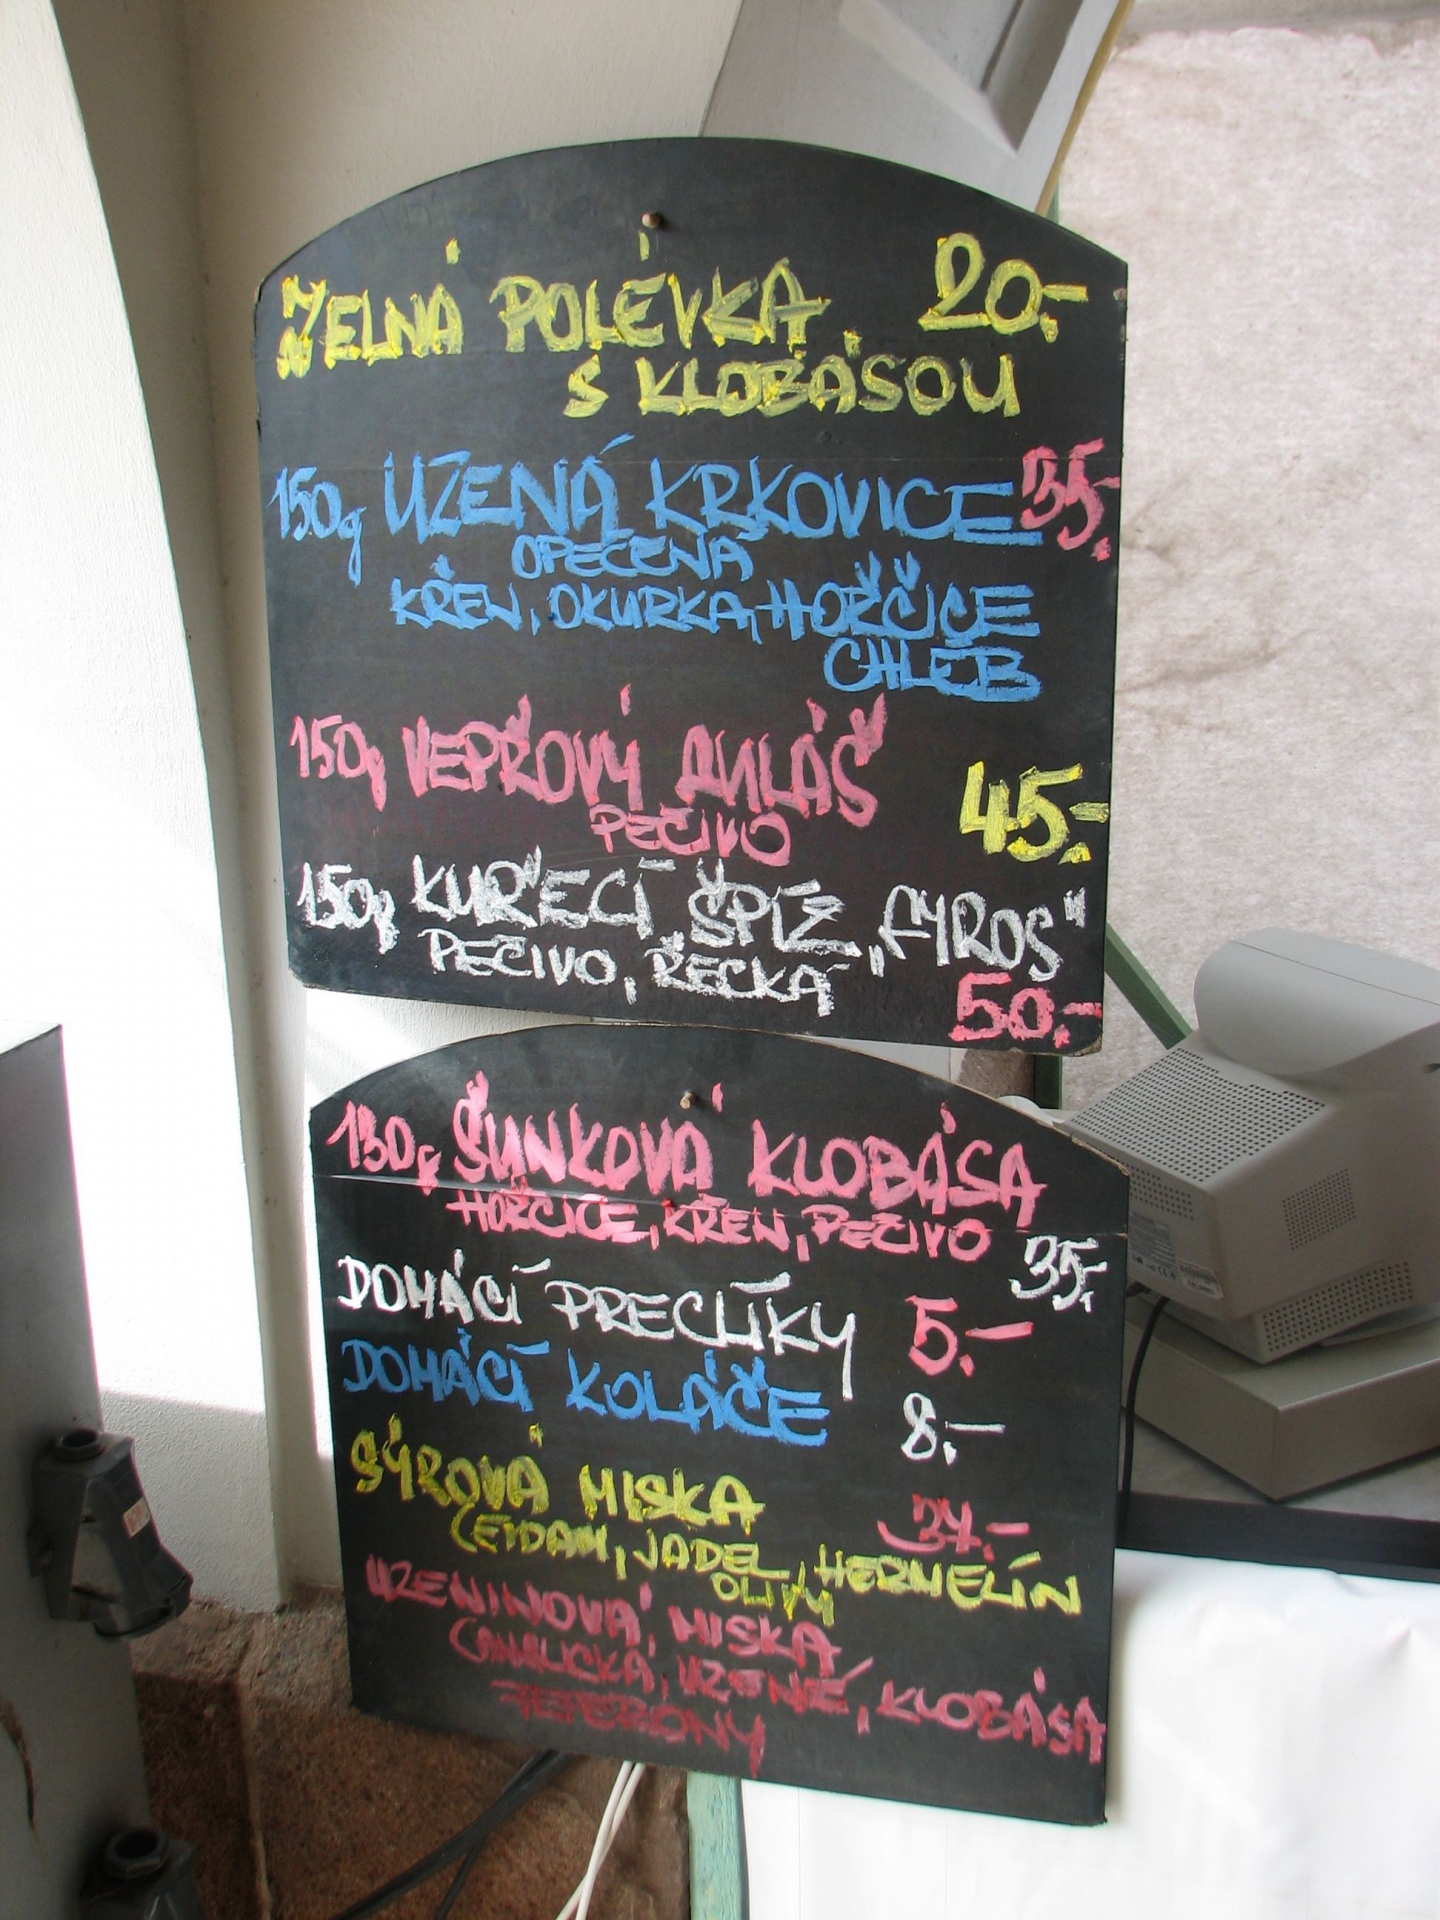 ZELNÁ POLÉVKA 20.-
S KLOBÁSOU
150g UZENÁ KRKOVICE 35.-
OPEČENÁ
KŘEN, OKURKA, HOŘČICE
CHLÉB
150g VEPŘOVÝ GULÁŠ
PEČIVO 45.-
150g KUŘECÍ ŠPÍZ „GYROS“
PEČIVO, ŘECKÁ
50.-
130g ŠUNKOVÁ KLOBÁSA
HOŘČICE, KŘEN, PEČIVO
35.-
DOMÁCÍ PRECLÍKY 5.-
DOMÁCÍ KOLÁČE 8.-
SÝROVÁ MISKA 37.-
(EIDAM, JADEL, HERMELÍN
OLIVY
UZENINOVÁ MISKA
UZENÉ, KLOBÁSA
FEFERONY